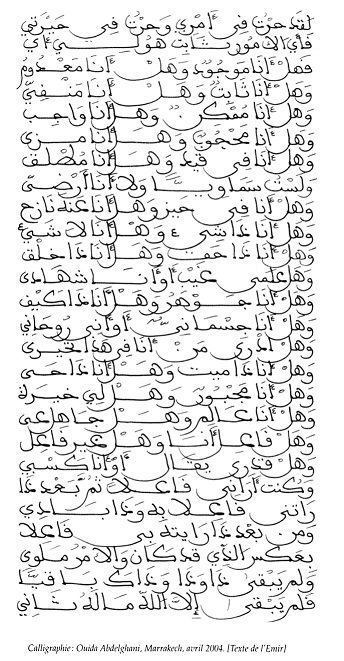 لقد حرت في أمري وحرت في حيرتي
فأي الأمور ثابت هو لي أي
فهل أنا موجود وهل أنا معدوم
وهل أنا ثابت وهل أنا منفي
وهل أنا ممكن وهل أنا واجب
وهل أنا محجوب وهل أنا مرئي
وهل أنا في قيد وهل أنا مطلق
ولست سماويا ولا أنا أرضي
وهل أنا في حيز وهل أنا عنه نازح
وهل أنا ذا شيء وهل أنا لا شيء
وهل أنا ذا حق وهل أنا ذا خلق
وهل علمي غيب أو أنا شهادي
وهل أنا جوهر وهل أنا ذا كيف
وهل أنا جسماني أو أني روحاني
وهل أدري من أنا في هذا تحيري
وهل أنا ذا ميت وهل أنا ذا حي
وهل أنا مجبور وهل لي خيرة
وهل أنا عالم وهل جاهل عي
وهل فاعل أنا وهل غير فاعل
وهل قدري يقال أو أنا كسبي
وكنت أراني فاعلا ثم بعد ذا
رآني فاعلا به وذا بادي
ومن بعد ذا رأيته بي فاعلا
بعكس الذي قد كان والأمر ملوي
ولم يبقى ذا وذا وذاك باقيا
فلم يبقى إلا الله ما له ثاني
Calligraphie: Ouida Abdelghani, Marrakech, avril 2004. [Texte de l'Emir]